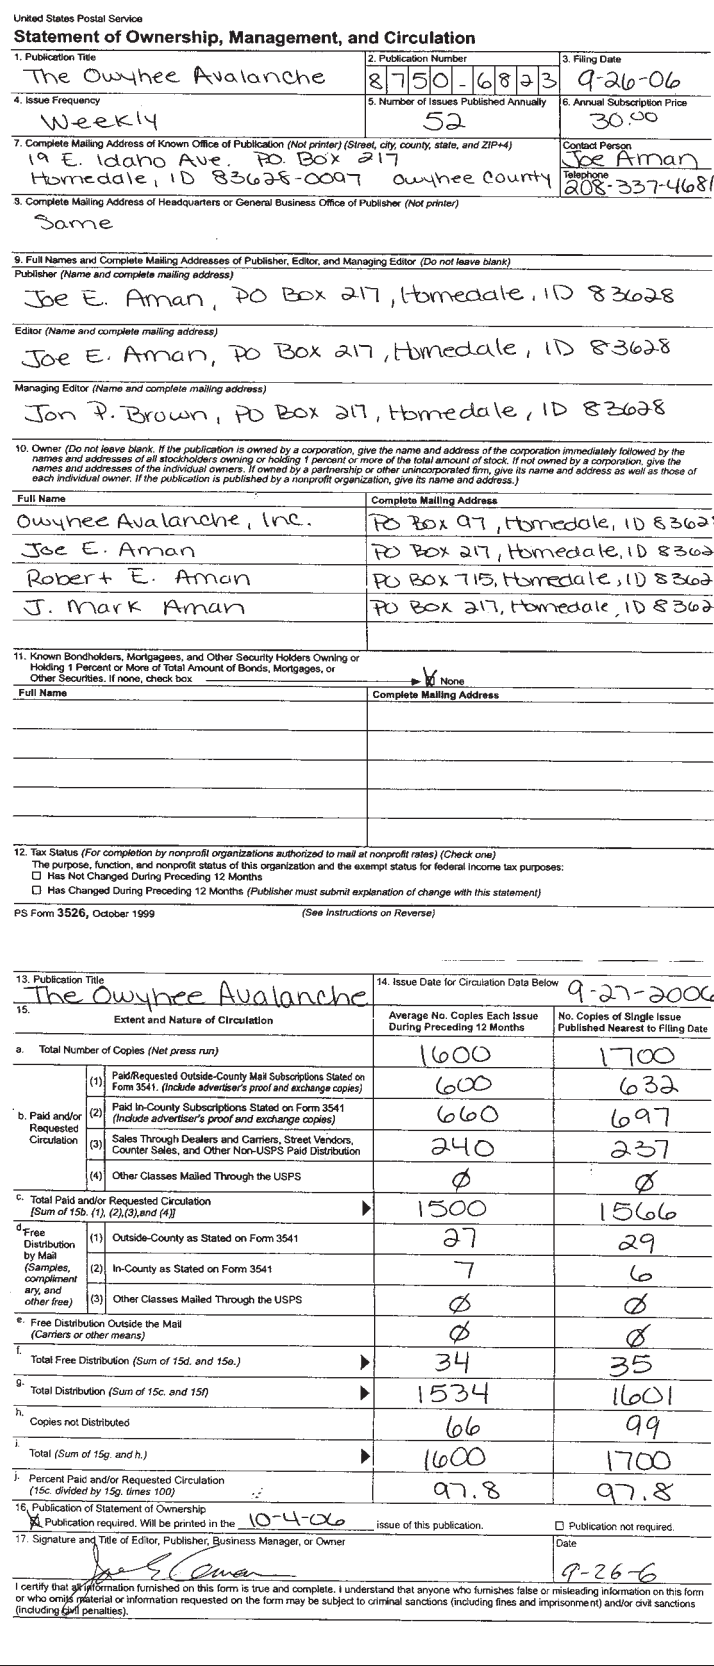 United States Postal Service
Statement of Ownership, Management, and Circulation
1. Publication Title
The Owyhee Avalanche
2. Publication Number
8750-6823
3. Filing Date
9-26-06
4. Issue Frequency
Weekly
5. Number of Issues Published Annually
52
6. Annual Subscription Price
30.00
7. Complete Mailing Address of Known Office of Publication (Not printer) (Street, city, county, state, and ZIP+4)
19 E. Idaho Ave. P.O. Box 217
Homedale, ID 83628-0097 Owyhee County
Contact Person
Joe Aman
Telephone
208-337-4681
8. Complete Mailing Address of Headquarters or General Business Office of Publisher (Not printer)
Same
9. Full Names and Complete Mailing Addresses of Publisher, Editor, and Managing Editor (Do not leave blank)
Publisher (Name and complete mailing address)
Joe E. Aman, PO Box 217, Homedale, ID 83628
Editor (Name and complete mailing address)
Joe E. Aman, PO Box 217, Homedale, ID 83628
Managing Editor (Name and complete mailing address)
Jon P. Brown, PO Box 217, Homedale, ID 83628
10. Owner (Do not leave blank. If the publication is owned by a corporation, give the name and address of the corporation immediately followed by the
names and addresses of all stockholders owning or holding 1 percent or more of the total amount of stock. If not owned by a corporation, give the
names and addresses of the individual owners. If owned by a partnership or other unincorporated firm, give its name and address as well as those of
each individual owner. If the publication is published by a nonprofit organization, give its name and address.)
Full Name Complete Mailing Address
Owyhee Avalanche, Inc. PO Box 97, Homedale, ID 8362
Joe E. Aman PO Box 217, Homedale, ID 8362
Robert E. Aman PO Box 715, Homedale, ID 8362
J. Mark Aman PO Box 217, Homedale, ID 8362
11. Known Bondholders, Mortgagees, and Other Security Holders Owning or
Holding 1 Percent or More of Total Amount of Bonds, Mortgages, or
Other Securities. If none, check box None
Full Name Complete Mailing Address
12. Tax Status (For completion by nonprofit organizations authorized to mail at nonprofit rates) (Check one)
The purpose, function, and nonprofit status of this organization and the exempt status for federal income tax purposes:
Has Not Changed During Preceding 12 Months
Has Changed During Preceding 12 Months (Publisher must submit explanation of change with this statement)
PS Form 3526, October 1999 (See Instructions on Reverse)
13. Publication Title
The Owyhee Avalanche
14. Issue Date for Circulation Data Below
9-27-2006
15.
Extent and Nature of Circulation
Average No. Copies Each Issue
During Preceding 12 Months
No. Copies of Single Issue
Published Nearest to Filing Date
a. Total Number of Copies (Net press run) 1600 1700
b. Paid and/or
Requested
Circulation
(1) Paid/Requested Outside-County Mail Subscriptions Stated on
Form 3541. (Include advertiser's proof and exchange copies) 600 632
(2) Paid In-County Subscriptions Stated on Form 3541
(Include advertiser's proof and exchange copies) 660 697
(3) Sales Through Dealers and Carriers, Street Vendors,
Counter Sales, and Other Non-USPS Paid Distribution 240 237
(4) Other Classes Mailed Through the USPS Ø Ø
c. Total Paid and/or Requested Circulation
[Sum of 15b. (1), (2),(3),and (4)] 1500 1566
d. Free
Distribution
by Mail
(Samples,
compliment
ary, and
other free)
(1) Outside-County as Stated on Form 3541 27 29
(2) In-County as Stated on Form 3541 7 6
(3) Other Classes Mailed Through the USPS Ø Ø
e. Free Distribution Outside the Mail
(Carriers or other means) Ø Ø
f. Total Free Distribution (Sum of 15d. and 15e.) 34 35
g. Total Distribution (Sum of 15c. and 15f) 1534 1601
h. Copies not Distributed 66 99
i. Total (Sum of 15g. and h.) 1600 1700
j. Percent Paid and/or Requested Circulation
(15c. divided by 15g. times 100) 97.8 97.8
16. Publication of Statement of Ownership
Publication required. Will be printed in the 10-4-06 issue of this publication. Publication not required.
17. Signature and Title of Editor, Publisher, Business Manager, or Owner
Joe E Aman
Date
9-26-6
I certify that all information furnished on this form is true and complete. I understand that anyone who furnishes false or misleading information on this form
or who omits material or information requested on the form may be subject to criminal sanctions (including fines and imprisonment) and/or civil sanctions
(including civil penalties).